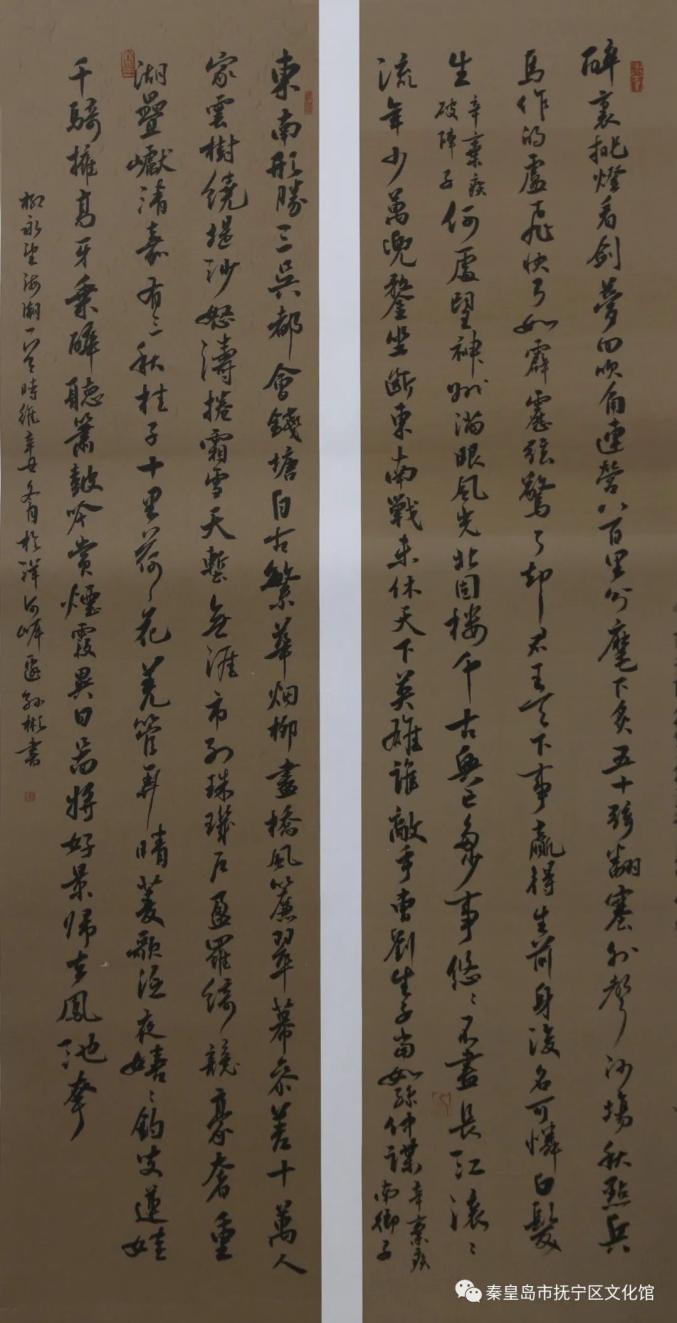 醉裏挑燈看劍夢回吹角連營八百里分麾下炙五十弦翻塞外聲沙場秋點兵
馬作的盧飛快弓如霹靂弦驚了却君王天下事贏得生前身後名可憐白髮
生 辛棄疾破陣子 何處望神州滿眼風光北固樓千古興亡多少事悠〻不盡長江滾〻
流年少萬兜鍪坐斷東南戰未休天下英雄誰敵手曹劉生子當如孫仲謀 辛棄疾南鄉子
東南形勝三吳都會錢塘自古繁華烟柳畫橋風簾翠幕參差十萬人
家雲樹繞堤沙怒濤捲霜雪天塹無涯市列珠璣户盈羅綺競豪奢重
湖疊巘清嘉有三秋桂子十里荷〻花羌管弄晴菱歌泛夜嬉〻釣叟蓮娃
千騎擁高牙乘醉聽簫鼓吟賞煙霞異日圖將好景歸去鳳池夸
柳永望海潮一首時維辛丑冬月於洋河畔孫彬書
秦皇岛市抚宁区文化馆